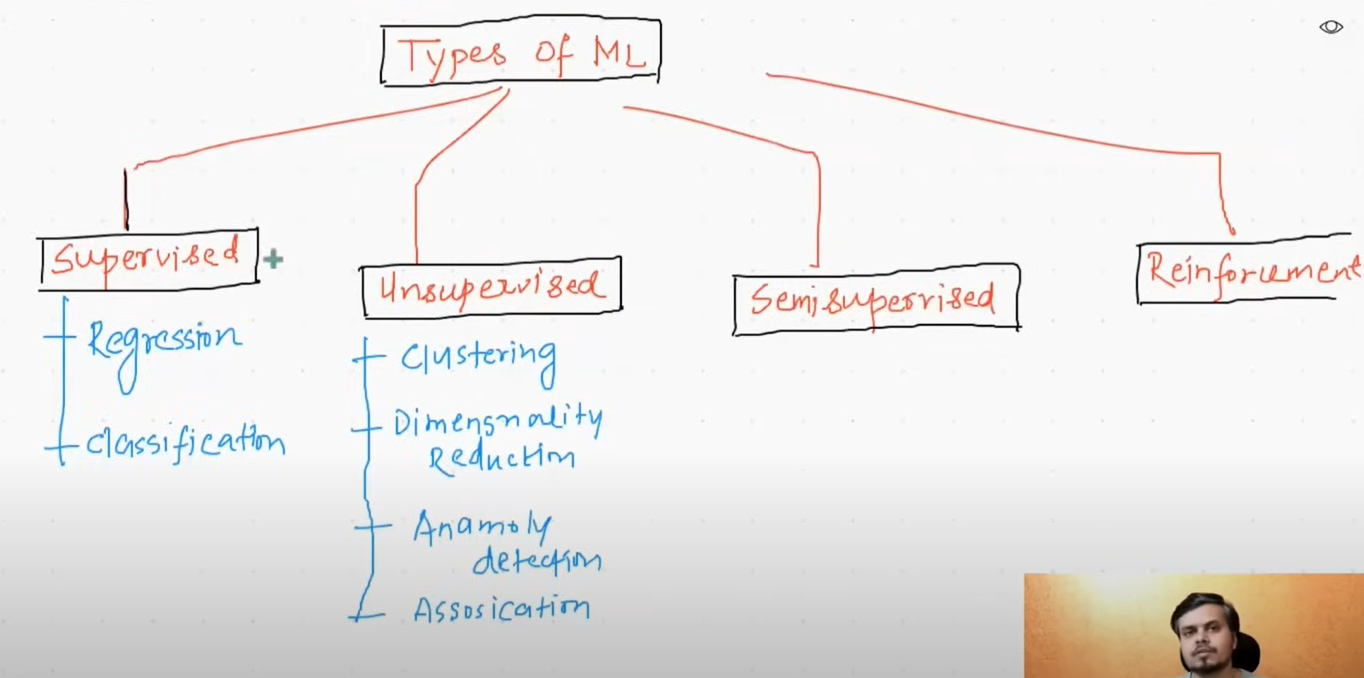 Types of ML
Supervised
Regression
Classification
Unsupervised
Clustering
Dimensnality
Reduction
Anamoly
detection
Assosication
Semisupervised
Reinforcement